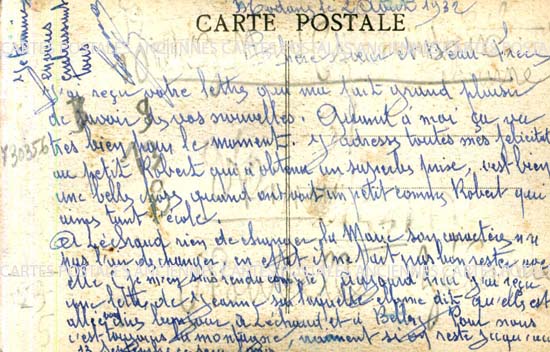 CARTE POSTALE
Modane le 2 Août 1932
Bien chère Sœur et Beau Frère
J'ai reçu votre lettre qui m'a fait grand plaisir
de savoir de vos nouvelles. Quant à moi ça va
très bien pour le moment. J'adresse toutes mes félicitat
au petit Robert qui a obtenu un superbe prix, c'est bien
une belle chose quand on voit un petit comme Robert que
aime tant l'école.
rien de changer la Marie son caractère n'a
pas l'air de changer, en effet il ne fait pas bon rester avec
elle je m'en suis rendu compte. Aujourd'hui j'ai reçu
une lettre de Jeanne sur laquelle elle me dit qu'elle est
allée à et à Belley. Pour nous
c'est toujours la montagne, vraiment si on reste jusqu'au
13 septembre
Je termine
en vous
embrassant
tous
730356
CARTES POSTALES ANCIENNES